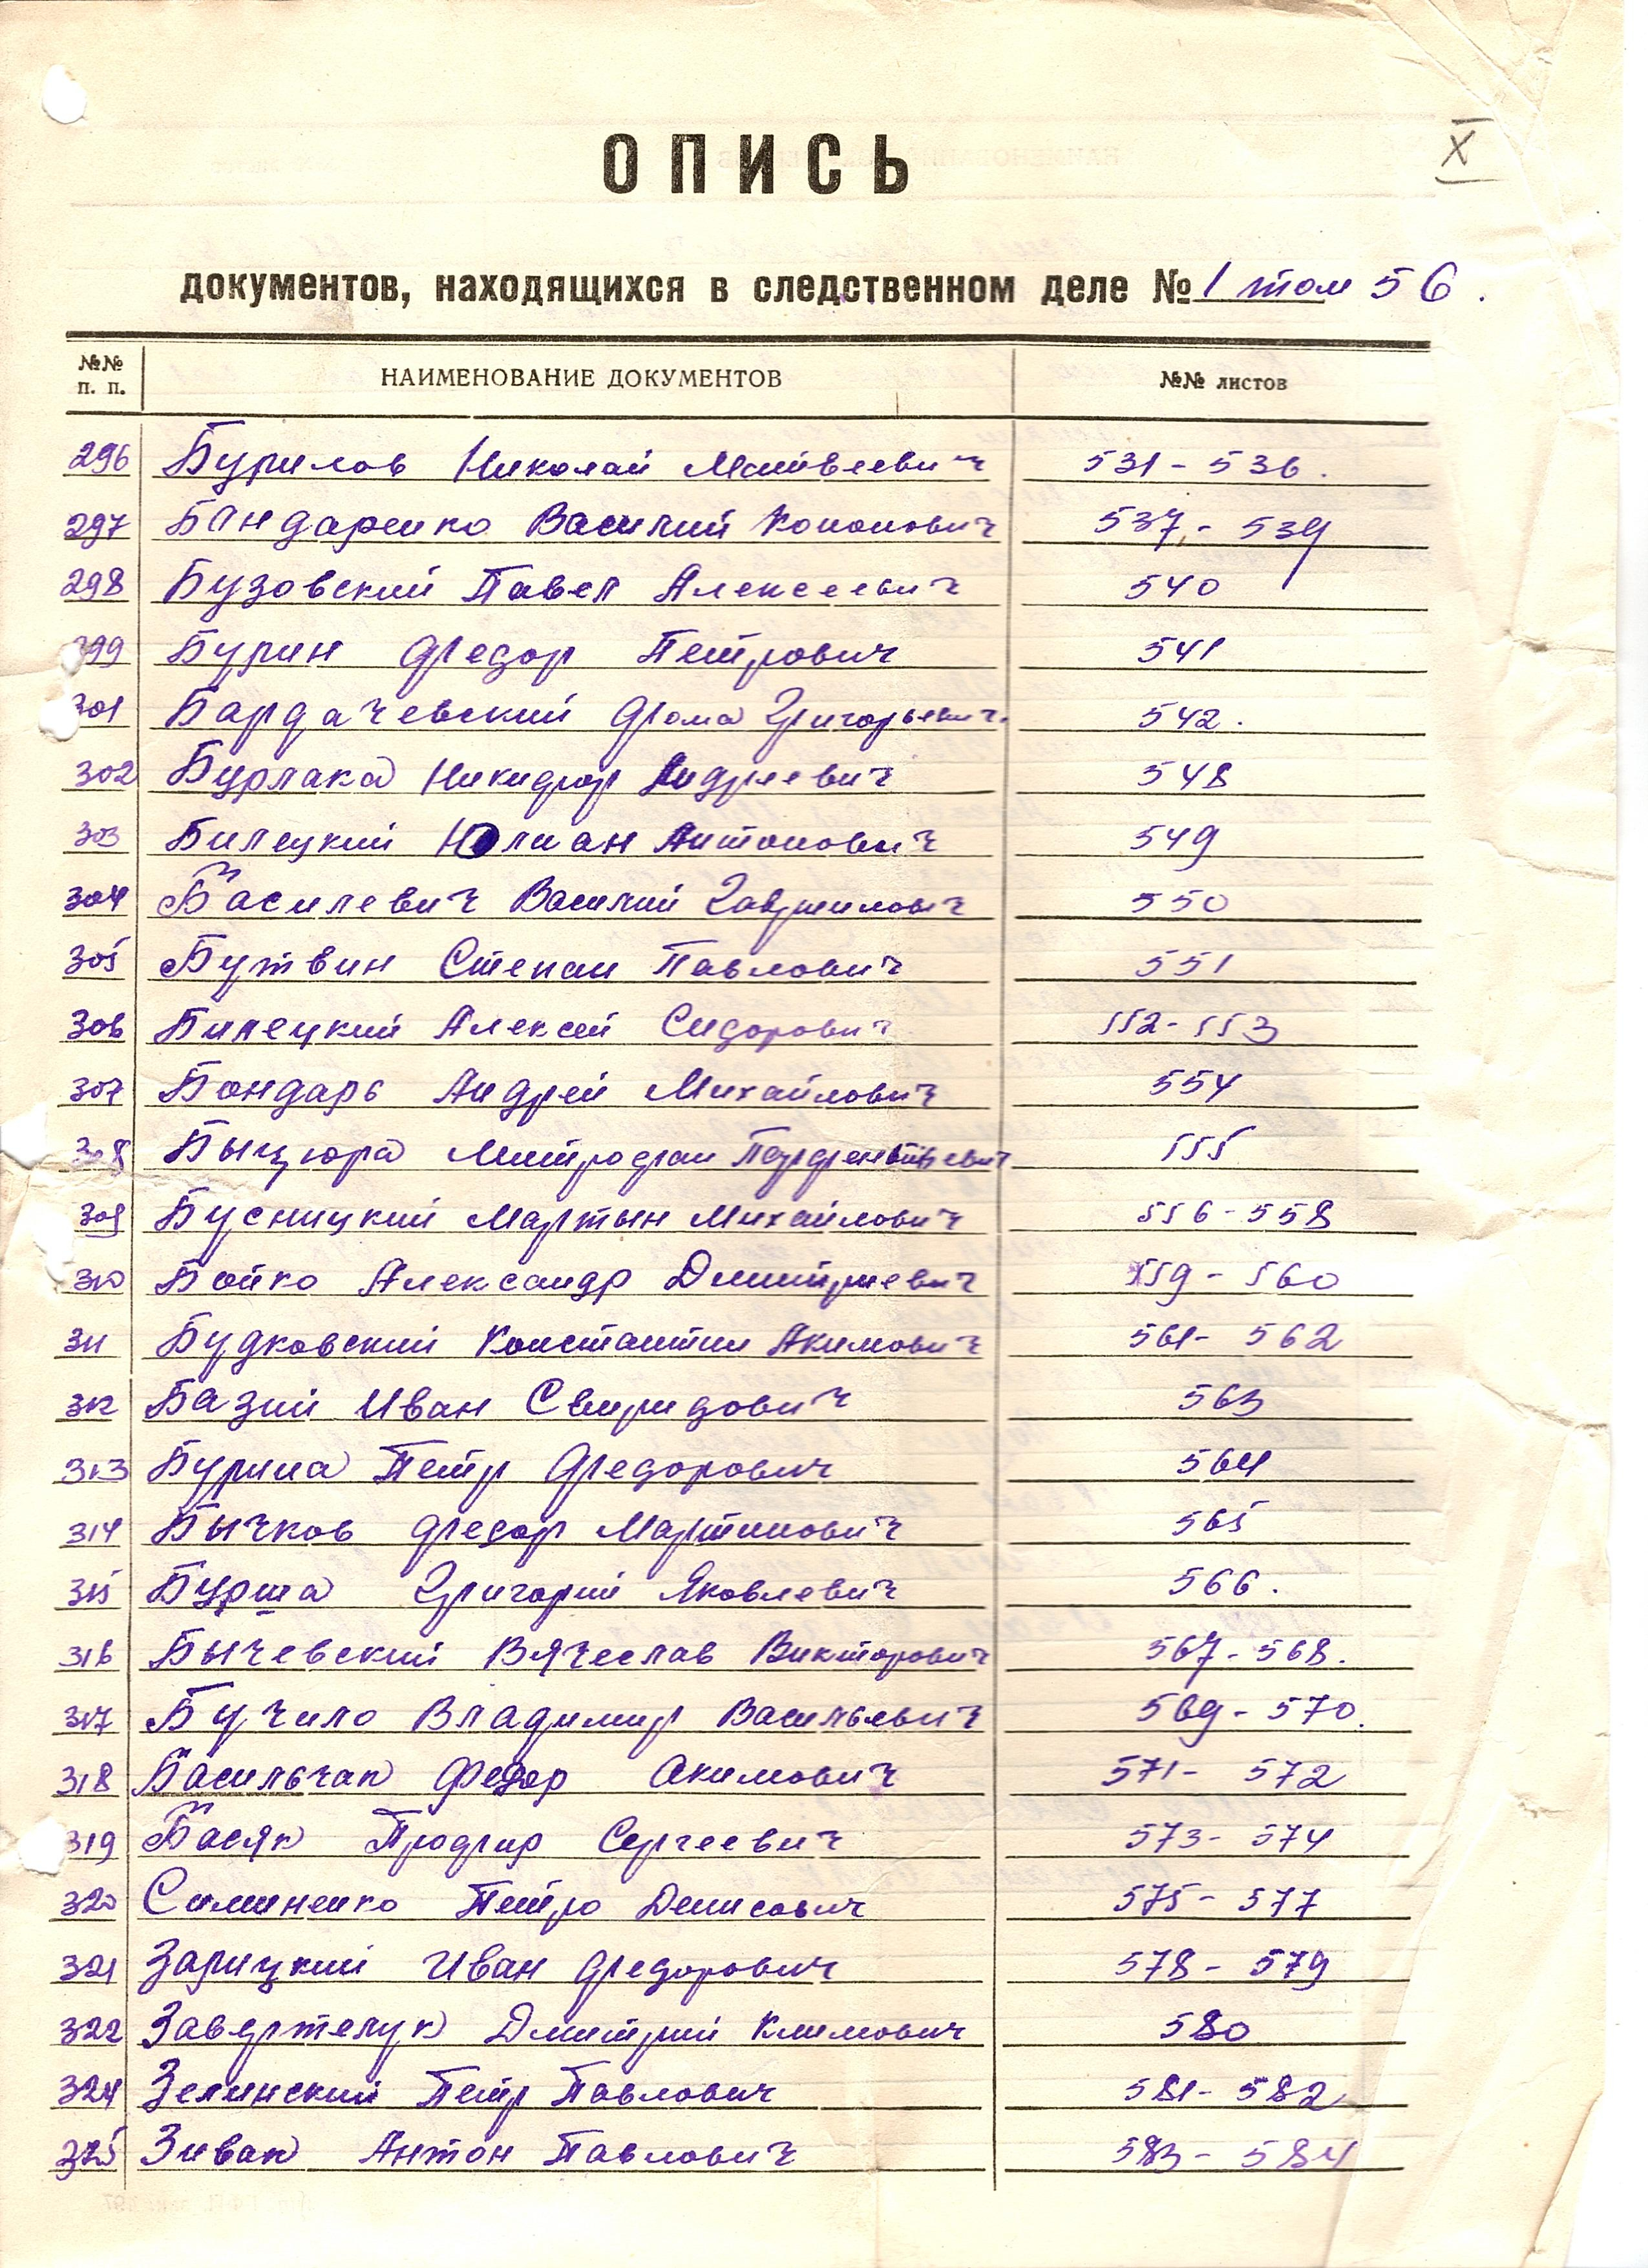 X
ОПИСЬ
документов, находящихся в следственном деле № 1 том 56.
№№ п. п. НАИМЕНОВАНИЕ ДОКУМЕНТОВ №№ листов
296 Бурилов Николай Матвеевич 531 - 536.
297 Бандаренко Василий Кононович 537 - 539
298 Бузовский Павел Алексеевич 540
299 Бурин Федор Петрович 541
301 Бардачевский Фома Григорьевич. 542.
302 Бурлака Никифор Андреевич 548
303 Билецкий Юлиан Антонович 549
304 Василевич Василий Гаврилович 550
305 Бутвин Степан Павлович 551
306 Билецкий Алексей Сидорович 552 - 553
307 Бондарь Андрей Михайлович 554
308 Быцюра Митрофан 555
309 Бусницкий Мартын Михайлович 556 - 558
310 Бойко Александр Дмитриевич 559 - 560
311 Будковский Константин Акимович 561 - 562
312 Базий Иван Свиридович 563
313 Бурина Петр Федорович 564
314 Бычков Федор Мартинович 565
315 Бурша Григорий Яковлевич 566.
316 Бычевский Вячеслав Викторович 567 - 568.
317 Бучило Владимир Васильевич 569 - 570.
318 Васильчак Федор Акимович 571 - 572
319 Басяк Профир Сергеевич 573 - 574
320 Симиненко Петро Денисович 575 - 577
321 Зарицкий Иван Федорович 578 - 579
322 Завертелук Дмитрий Климович 580
324 Зелинский Петр Павлович 581 - 582
325 Зивак Антон Павлович 583 - 584